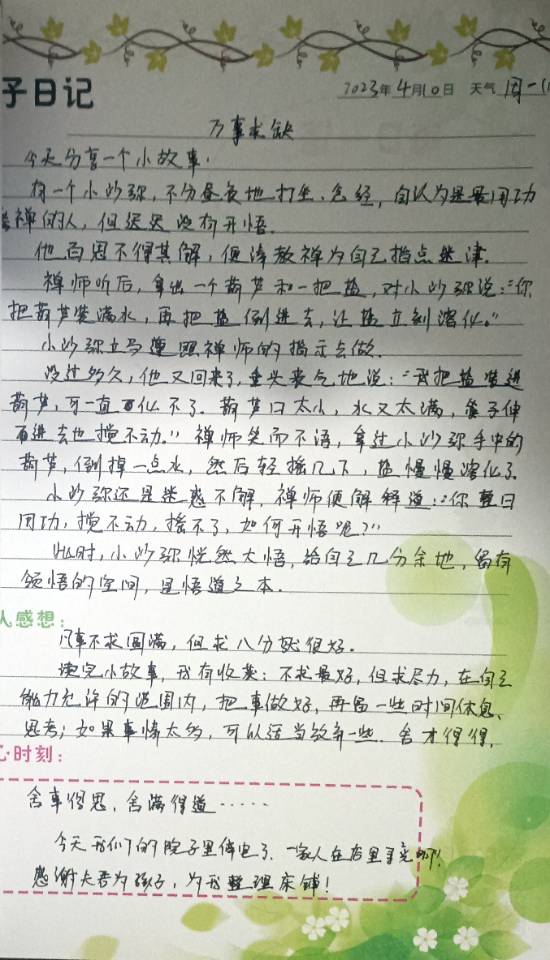 子日记
2023年4月10日 天气 周一
万事求缺
今天分享一个小故事.
有一个小沙弥,不分昼夜地打坐、念经,自认为是最用功
禅的人,但迟迟没有开悟.
他百思不得其解,便请教禅为自己指点迷津.
禅师听后,拿出一个葫芦和一把盐,对小沙弥说:“你
把葫芦装满水,再把盐倒进去,让盐立刻溶化。”
小沙弥立马遵照禅师的指示去做.
没过多久,他又回来了,垂头丧气地说:“我把盐装进
葫芦,可一直化不了.葫芦口太小,水又太满,筷子伸
进去也搅不动.”禅师笑而不语,拿过小沙弥手中的
葫芦,倒掉一点水,然后轻摇几下,盐慢慢溶化了.
小沙弥还是迷惑不解,禅师便解释道:“你整日
用功,搅不动,摇不了,如何开悟呢?”
此时,小沙弥恍然大悟,给自己几分余地,留有
领悟的空间,是悟道之本.
人感想:
凡事不求圆满,但求八分就很好.
读完小故事,我有收获:不求最好,但求尽力,在自己
能力允许的范围内,把事做好,再留一些时间休息、
思考;如果事情太多,可以适当放弃一些.舍才得得,
心时刻:
舍事得思,舍满得道……
今天我们的院子里停电了.一家人在店里
感谢大吾为孩子,为我整理床铺!